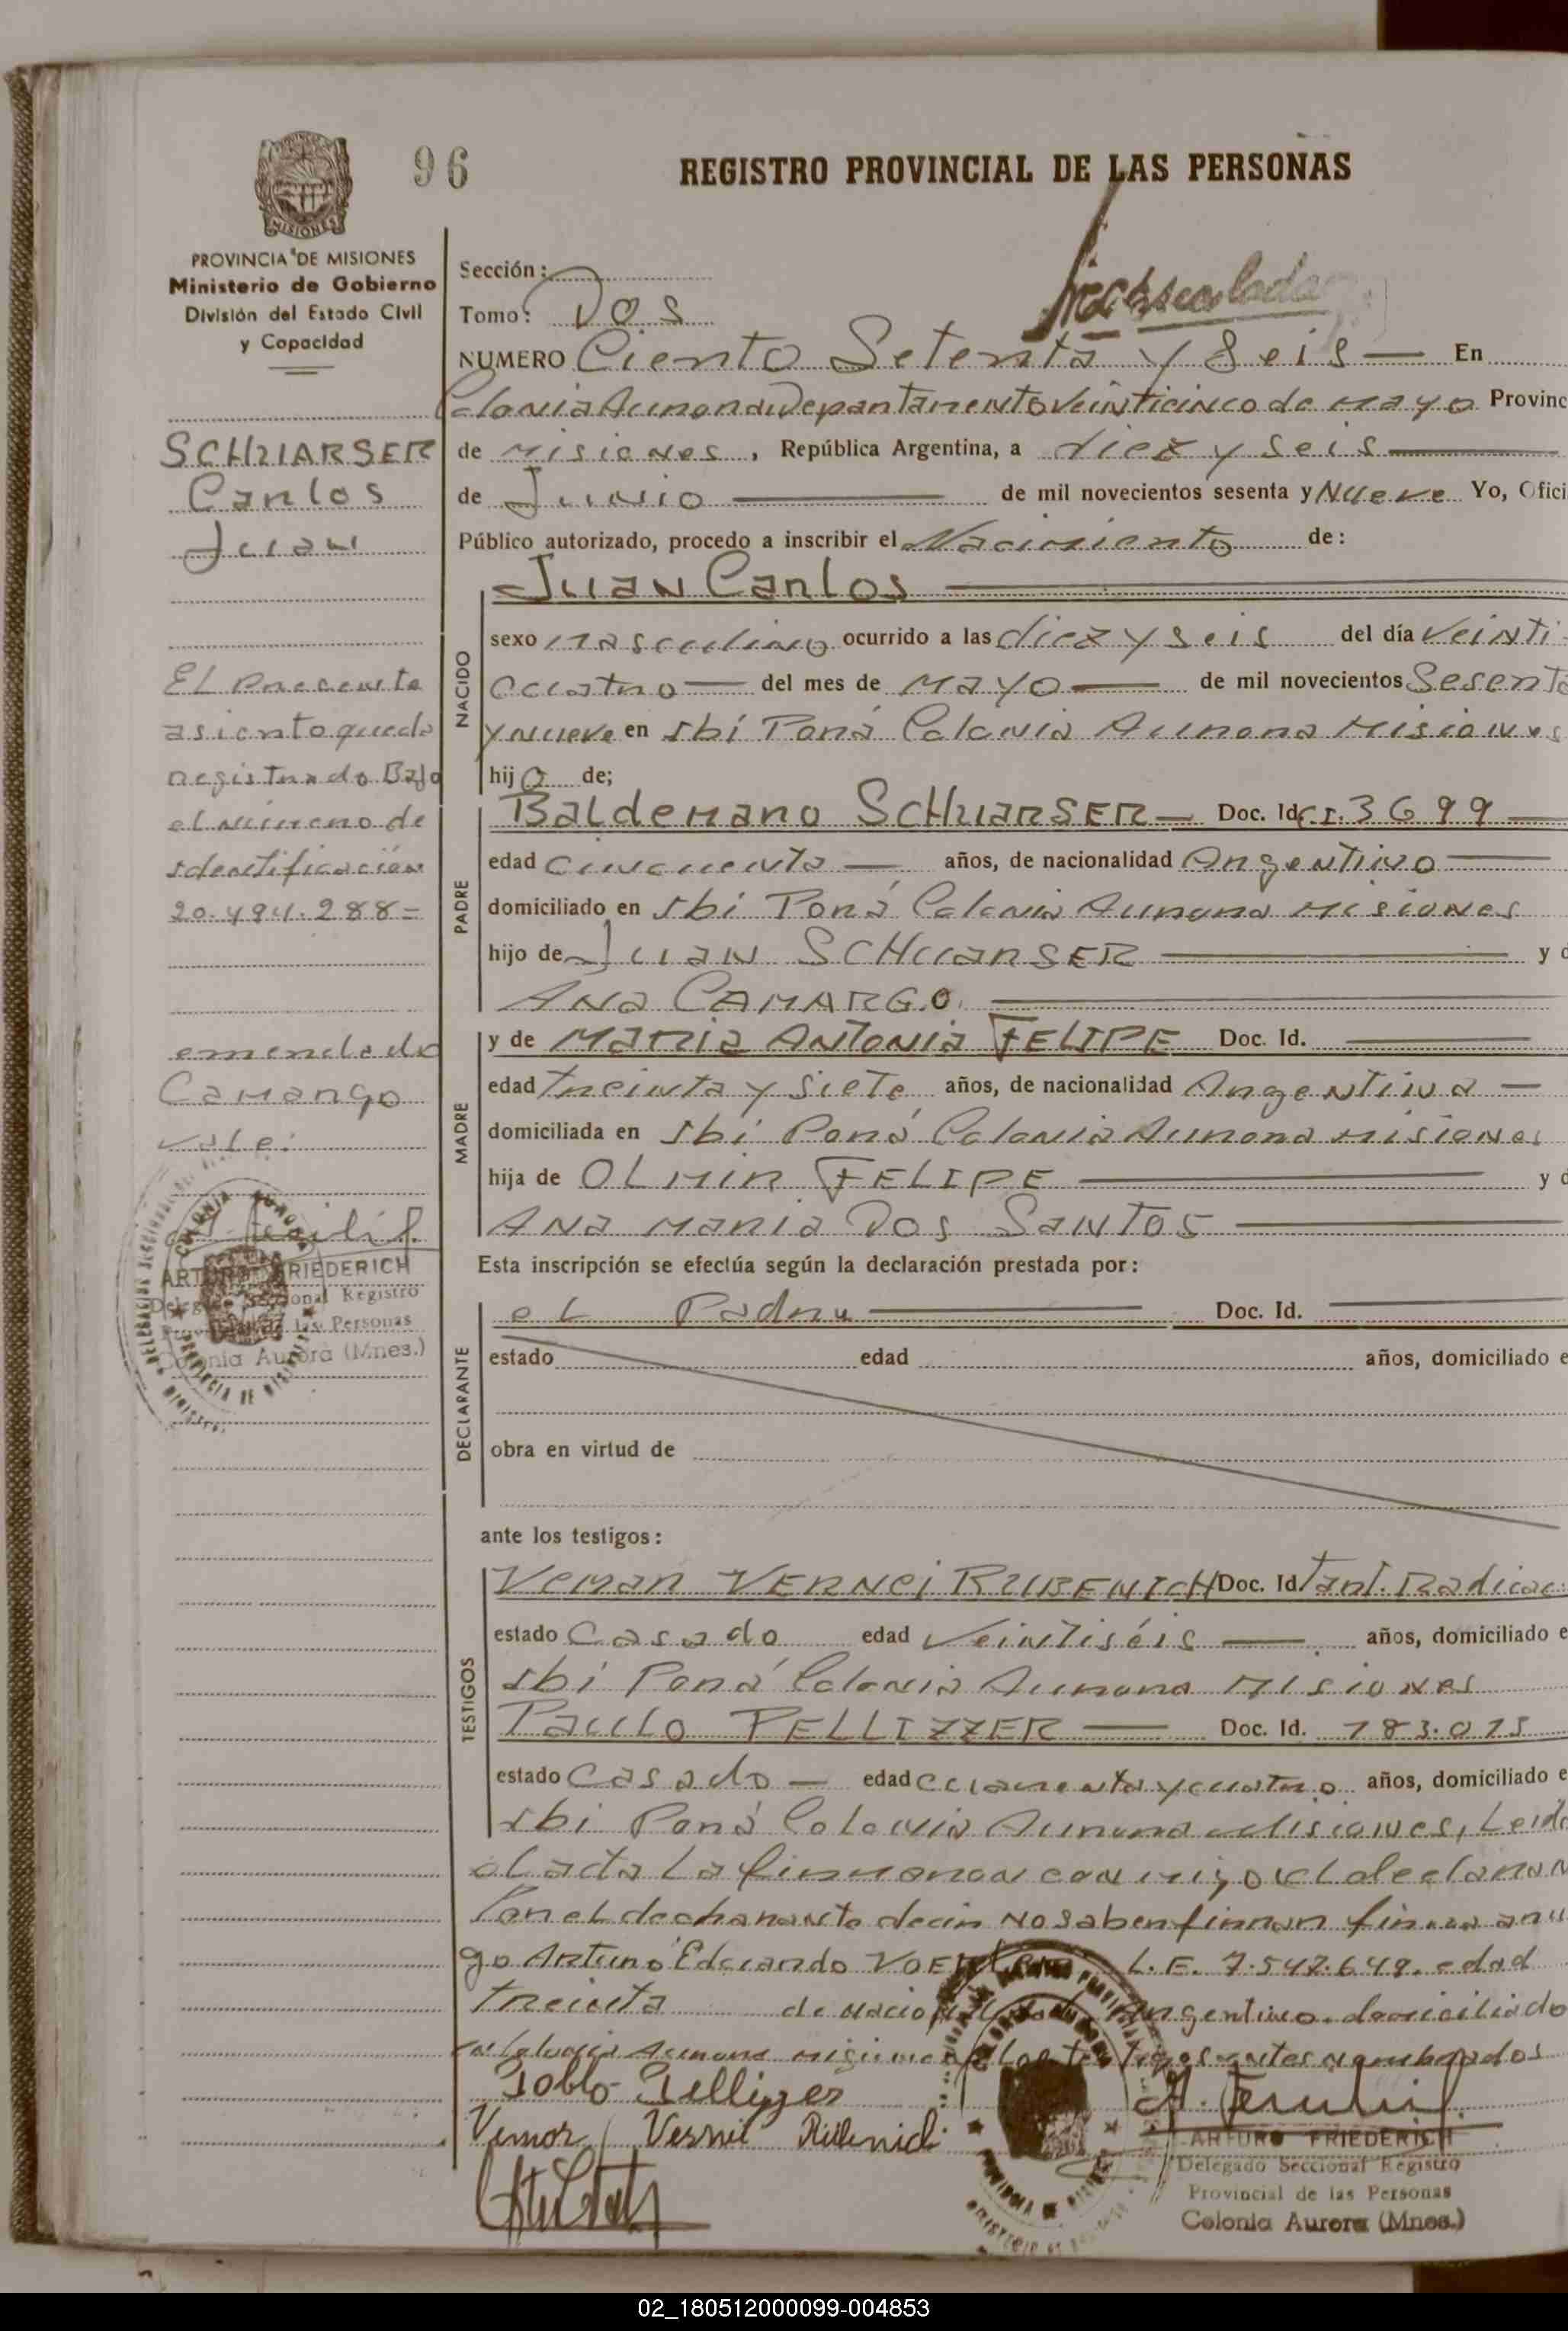 96
REGISTRO PROVINCIAL DE LAS PERSONAS
MISIONES
PROVINCIA DE MISIONES
Ministerio de Gobierno
División del Estado Civil
y Capacidad
SCHUARSER
Carlos
Juan
El Presente
asiento queda
registrado Bajo
el número de
identificación
20.494.288=
emendado
Camargo
vale:
COLONIA AURORA
ARTURO FRIEDERICH
Delegado Seccional Registro
Provincial de las Personas
Colonia Aurora (Mnes.)
Sección:
Tomo: Dos
NUMERO Ciento Setenta y Seis — En
Colonia Aurora Departamento Veinticinco de mayo Provinc
de Misiones, República Argentina, a diez y seis
de Junio de mil novecientos sesenta y Nueve Yo, Ofici
Público autorizado, procedo a inscribir el Nacimiento de:
NACIDO
Juan Carlos
sexo masculino ocurrido a las diez y seis del día veinti
cuatro — del mes de mayo — de mil novecientos Sesenta
y nueve en Ibí Porá Colonia Aurora Misiones
hijo de;
PADRE
Baldemaro SCHUARSER — Doc. Id C.I. 3699
edad cincuenta — años, de nacionalidad Argentino
domiciliado en Ibí Porá Colonia Aurora Misiones
hijo de Juan SCHuarSER y d
Ana CAMARGO
MADRE
y de Maria Antonia FELIPE Doc. Id.
edad treinta y siete años, de nacionalidad Argentina —
domiciliada en Ibí Porá Colonia Aurora Misiones
hija de OLMIR FELIPE y d
Ana Maria Dos Santos
Esta inscripción se efectúa según la declaración prestada por:
DECLARANTE
el Padre Doc. Id.
estado edad años, domiciliado e
obra en virtud de
ante los testigos:
TESTIGOS
Vemar VERNEi RUBENICH Doc. Id Radicac
estado Casado edad Veintiséis — años, domiciliado e
Ibí Porá Colonia Aurora Misiones
Paulo PELLIZZER — Doc. Id. 183.015
estado Casado — edad cuarenta y cuatro años, domiciliado e
Ibí Porá Colonia Aurora Misiones, Leida
el acta La firmaron conmigo el declaran
Por el declarante decir no saber firmar firma a ru
go Arturo Eduardo L.E. 7.547.649. edad
treinta de nacionalidad Argentino. domiciliado
en Colonia Aurora misiones y los testigos antes nombrados
Pablo Pellizer
Vemor Vernei Rubenich
ARTURO FRIEDERICH
Delegado Seccional Registro
Provincial de las Personas
Colonia Aurora (Mnes.)
02_180512000099-004853